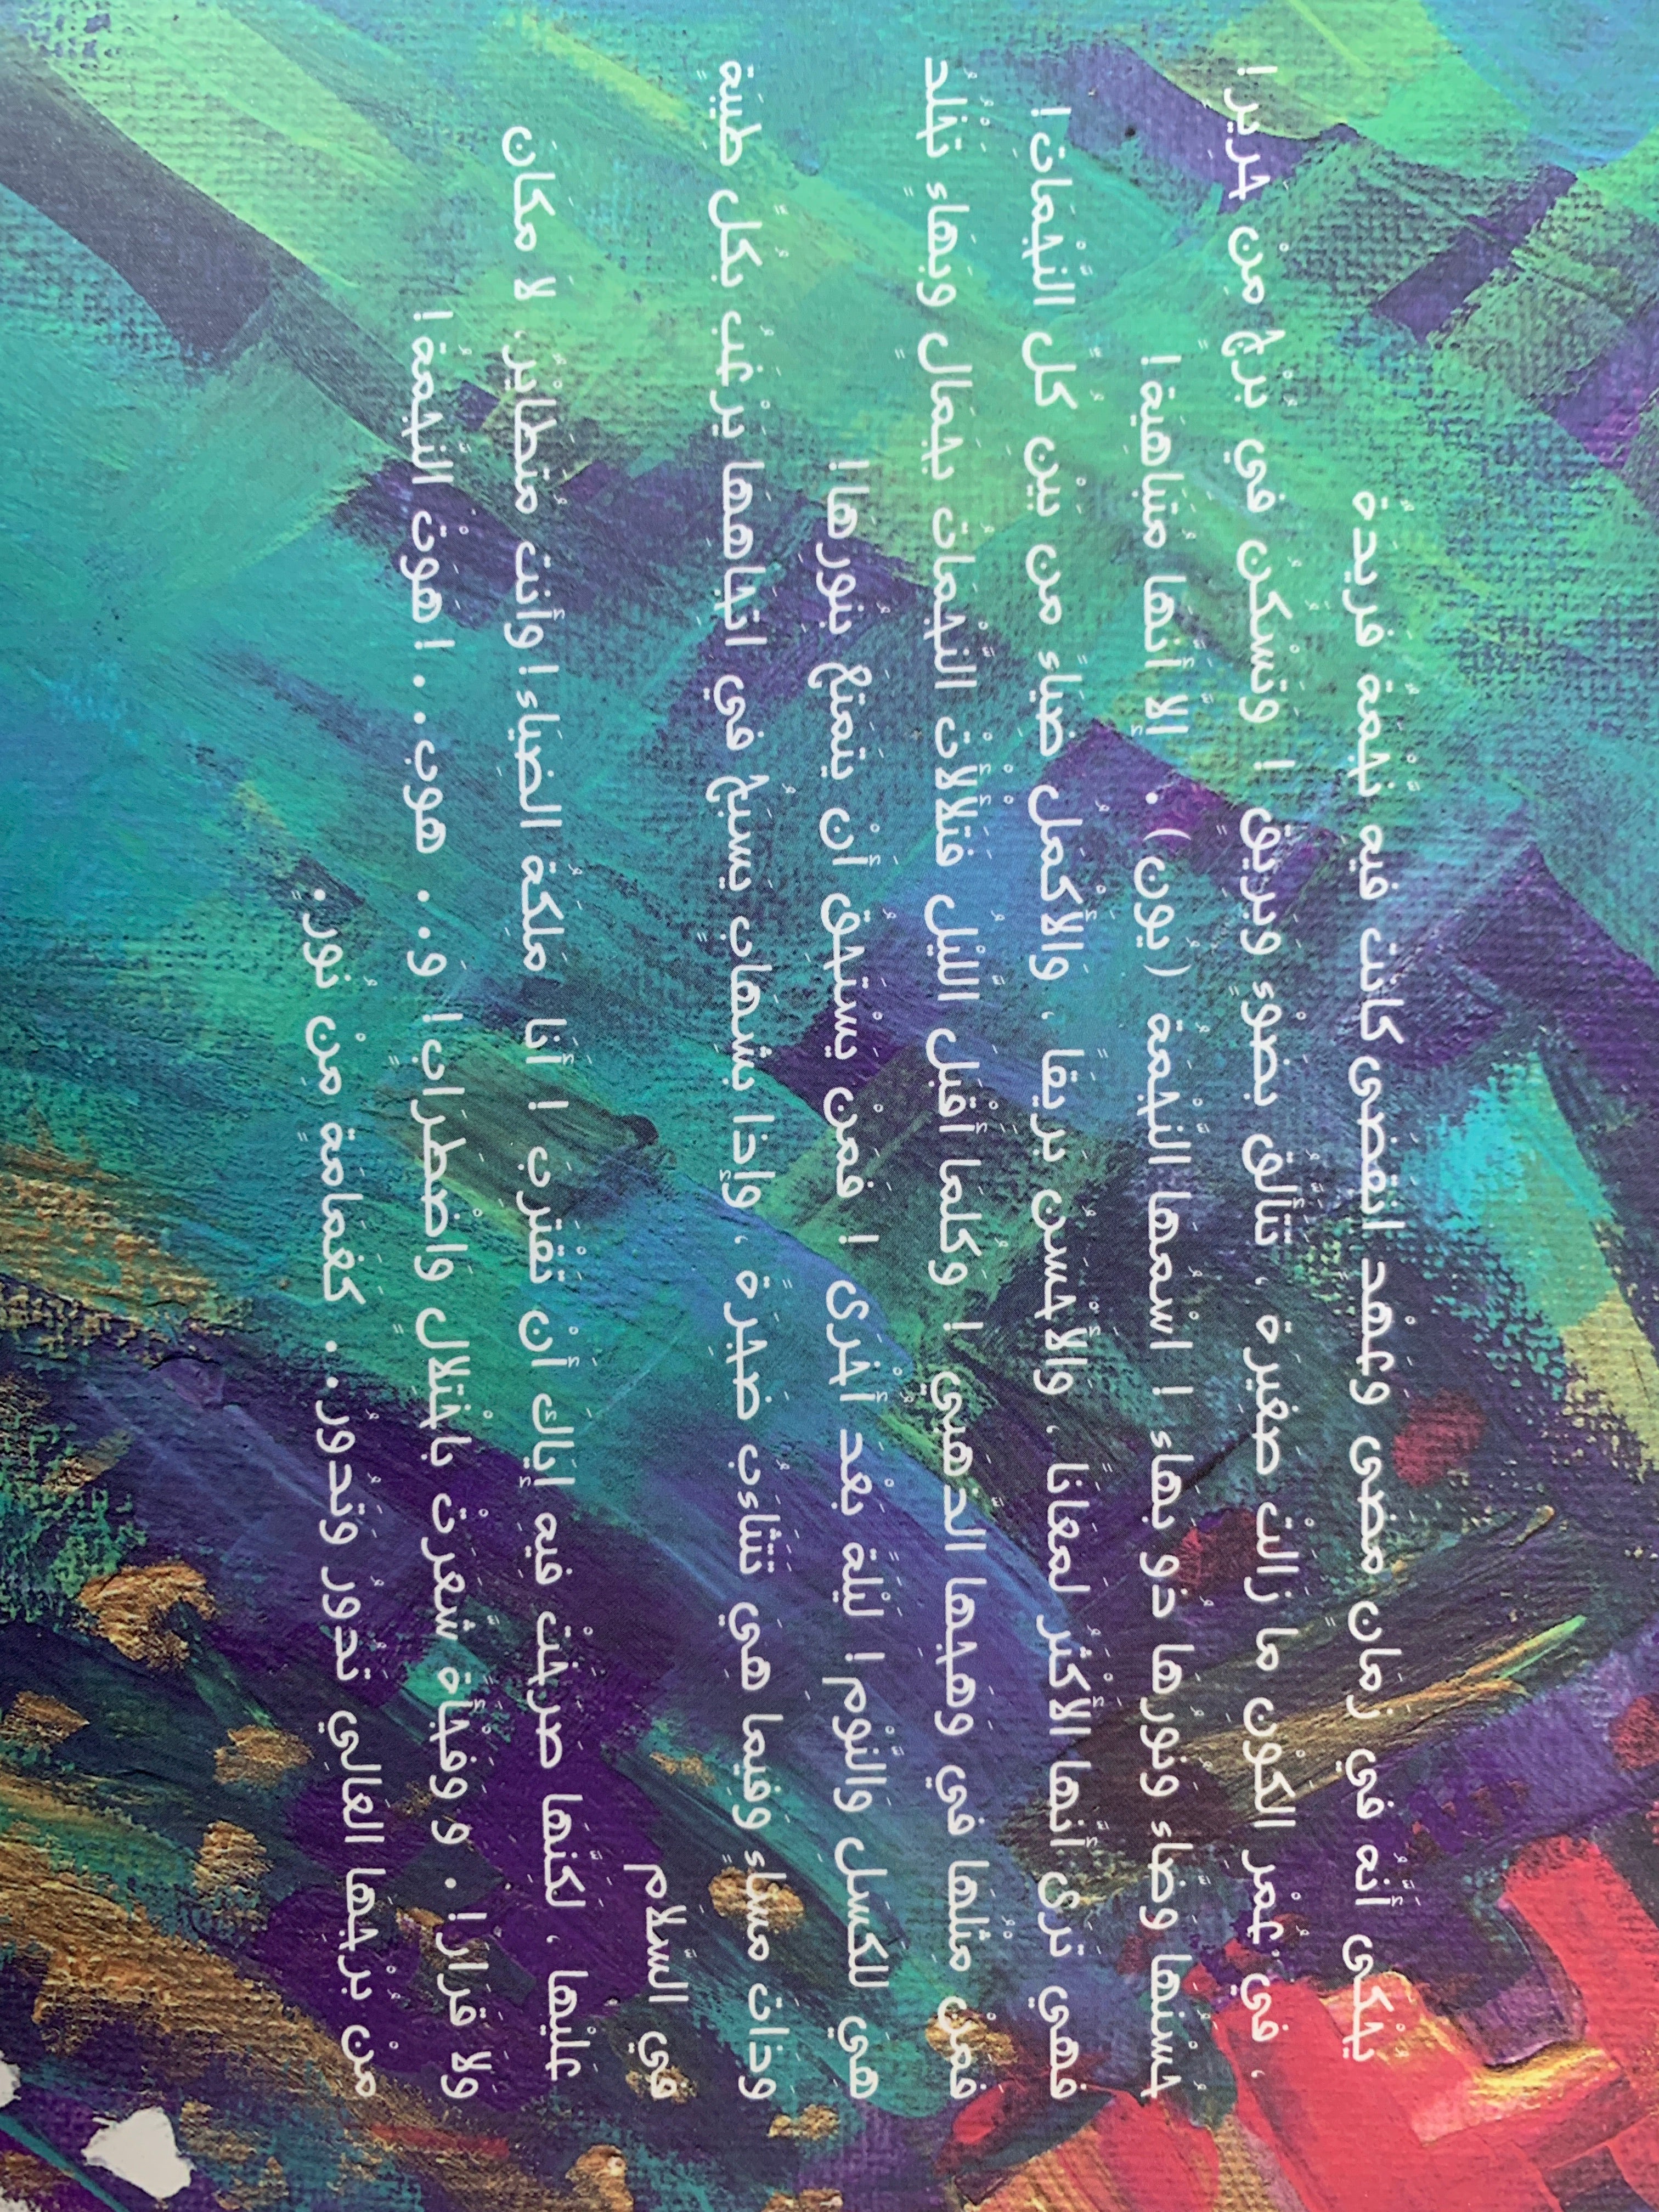 يُحْكى أنّه في زمانٍ مضى وعَهْدٍ انْقَضى كانَت فيه نَجْمَةٌ فَريدةٌ
، في عُمْرِ الكَوْنِ ما زالَتْ صغيرَة ، تتألّق بضَوْءٍ وبَريق ! وتَسْكُن في بُرْجٍ مِنْ حَرير!
حُسْنها وضاء ونورها ذو بهاء ! اسْمها النّجْمَة ( يون) . إلّا أنّها مُتباهية!
فهي تَرى أنّها الأَكْثَر لمعانا ، والأَحْسَن بَريقا ، والأَكْمل ضياءً من بَيْن كلّ النّجْمات!
فَمَنْ مثْلها في وهجها الذهبيّ ! وكلما أقْبل اللّيْل فتلألأت النّجْمات بجمالٍ وبَهاءٍ تَنْهَّد
هي للكسل والنّوْم! ليْلة بعد أخْرى ! فمَنْ يسْتحق أن يتمتّع بنورها!
وذات مساءٍ وفيما هي تتثاءب ضجِرَة ، وإذا بشهابٍ يسبحُ في اتجاهها يرْغب بكلّ طيبة
في السّلام
عليْها ، لكنّها صرخَتْ فيه إياك أن تقْترب ! أنا ملِكَة الضياء! وأنت مُتطايِرٌ لا مكان
ولا قرار! . و وفجأة شَعرتْ باخْتلالٍ واضْطراب! و.. هوب...! هوتْ النّجمة!
منْ برْجها العالي تدورُ وتَدورُ.. كغمامةٍ مِنْ نُورٍ.